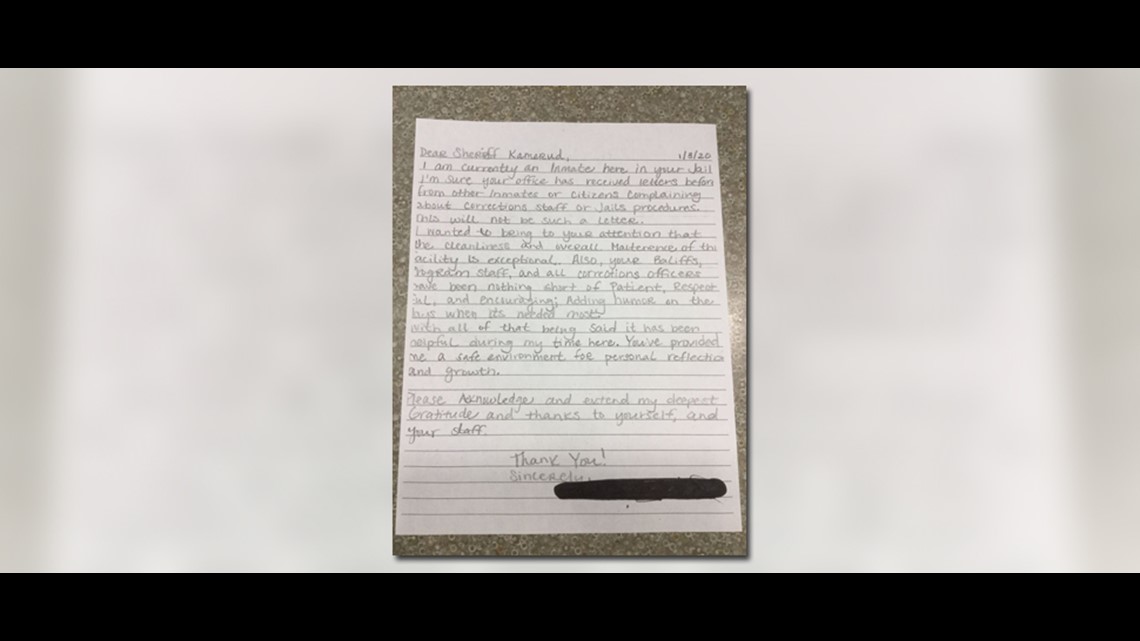 Dear Sheriff Kamerud, 1/8/20
I am currently an Inmate here in your Jail
I'm sure your office has received letters before
from other Inmates or citizens complaining
about corrections staff or Jails procedures.
This will not be such a letter.
I wanted to bring to your attention that
the cleanliness and overall of the
acility is exceptional. Also, your Baliffs,
rogram staff, and all corrections officers
have been nothing short of Patient, Respect
ful, and encouraging; Adding humor on the
days when its needed most.
with all of that being said it has been
helpful during my time here. You've provided
me a safe environment for personal reflectio
and growth.
Please Acknowledge and extend my deepest
Gratitude and thanks to yourself, and
your staff.
Thank You!
Sincerely,